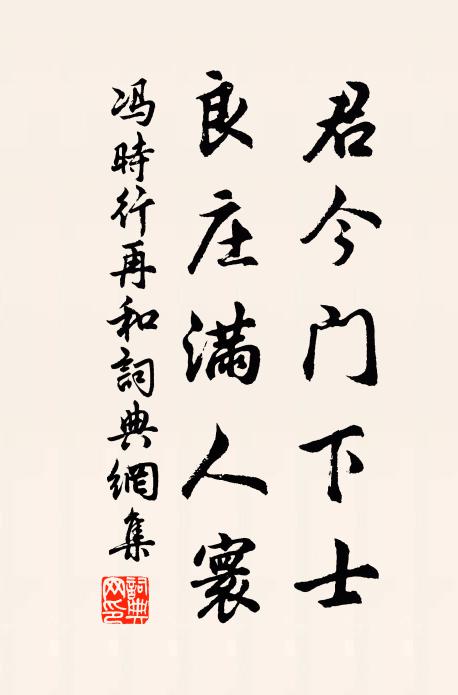 君今门下士
良庄满人寰
冯時行再和詞典網集
詞典网印